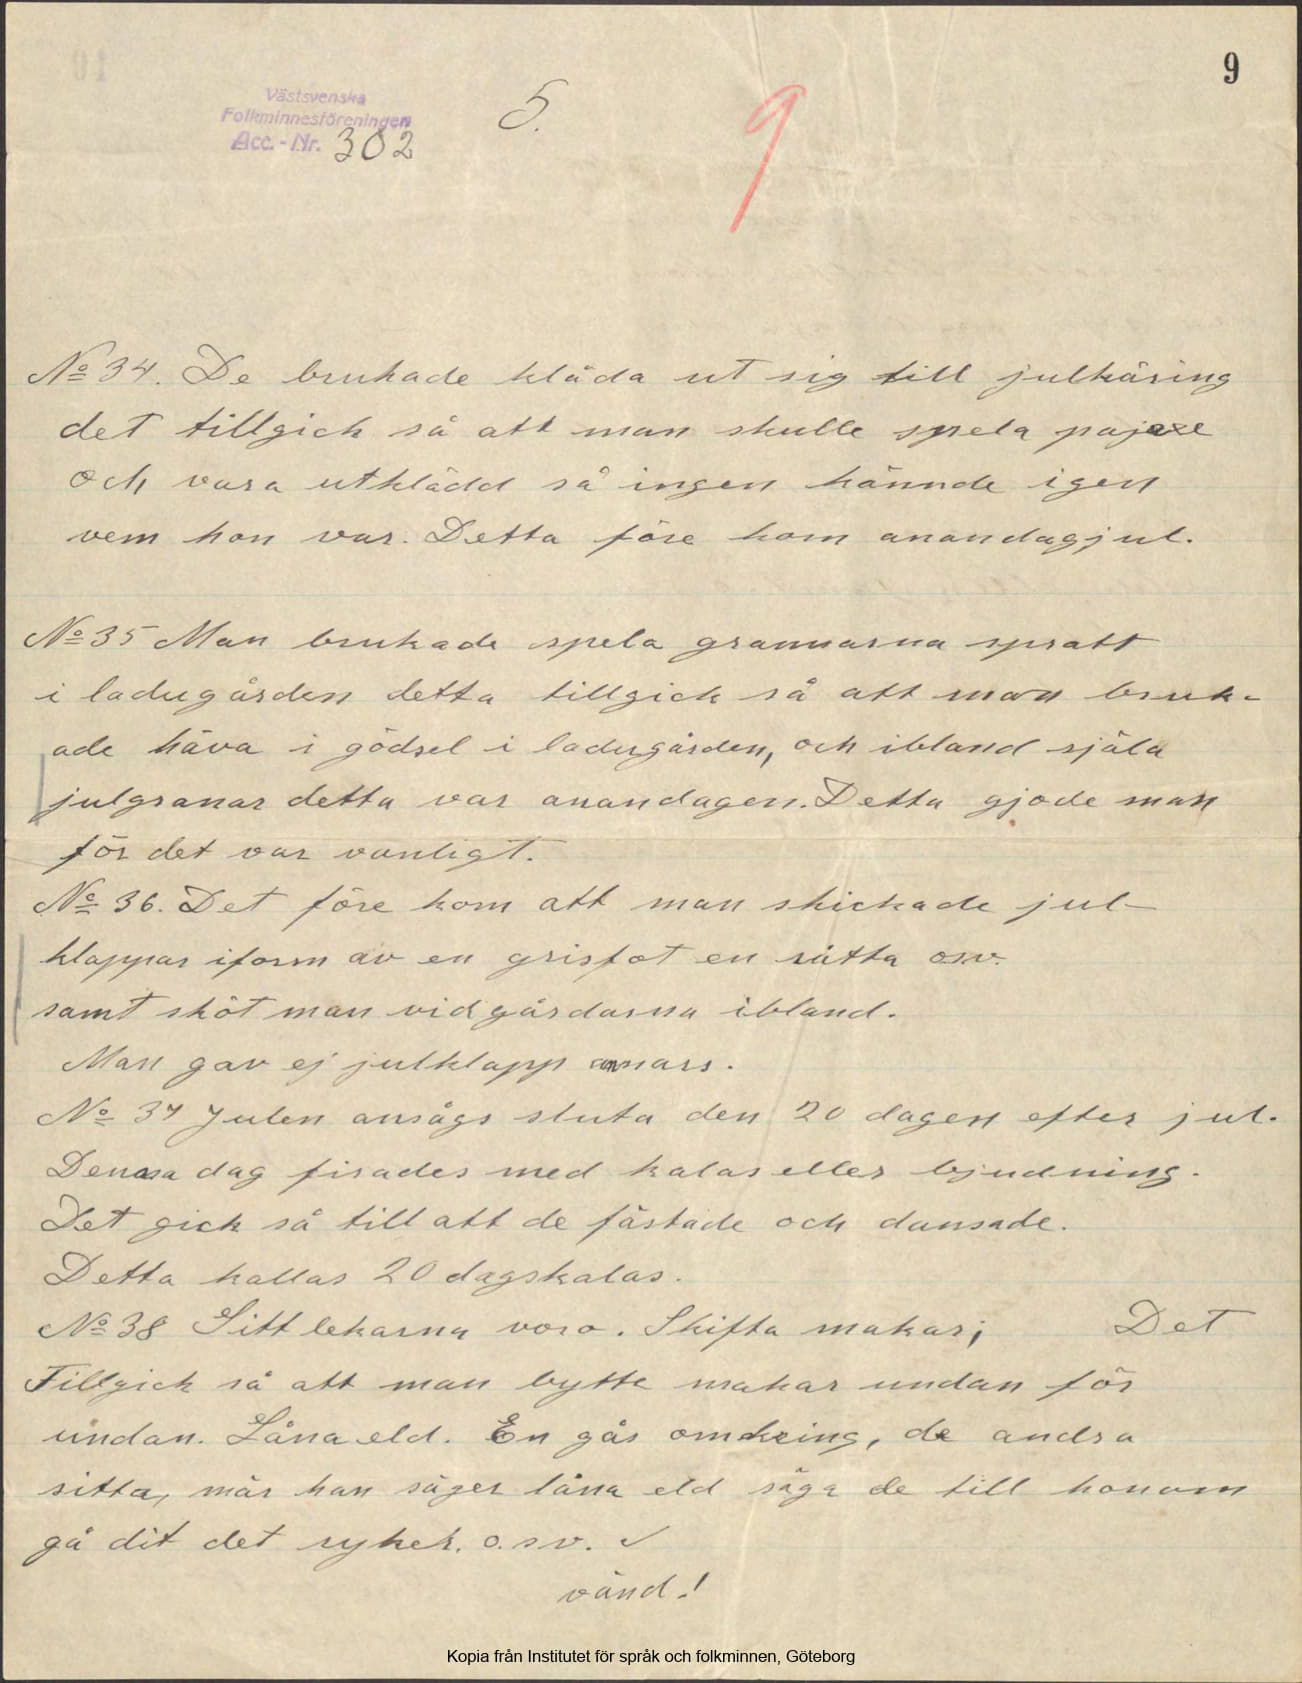 9
Västsvenska
Folkminnesföreningen
Acc.-Nr. 302
5.
9
No 34. De brukade kläda ut sig till julkäring
det tillgick så att man skulle spela pajase
och vara utklädd så ingen kännde igen
vem hon var. Detta före kom anandagjul.
No 35 Man brukade spela grannarna spratt
i ladugården detta tillgick så att man bruk-
ade häva i gödsel i ladugården, och ibland själa
julgranar detta var anandagen. Detta gjode man
för det var vanligt.
No 36. Det före kom att man skickade jul-
klappar iform av en grisfot en råtta osv.
samt sköt man vid gårdarna ibland.
Man gav ej julklapp annars.
No 37 Julen ansågs sluta den 20 dagen efter jul.
Denna dag firades med kalas eller bjudning.
Det gick så till att de fästade och dansade.
Detta kallas 20 dagskalas.
No 38 Sittlekarna voro. Skifta makar; Det
Tillgick så att man bytte makar undan för
undan. Låna eld. En gås omkring, de andra
sitta, när han säger låna eld säga de till honom
gå dit det ryker. o.sv.
vänd!
Kopia från Institutet för språk och folkminnen, Göteborg